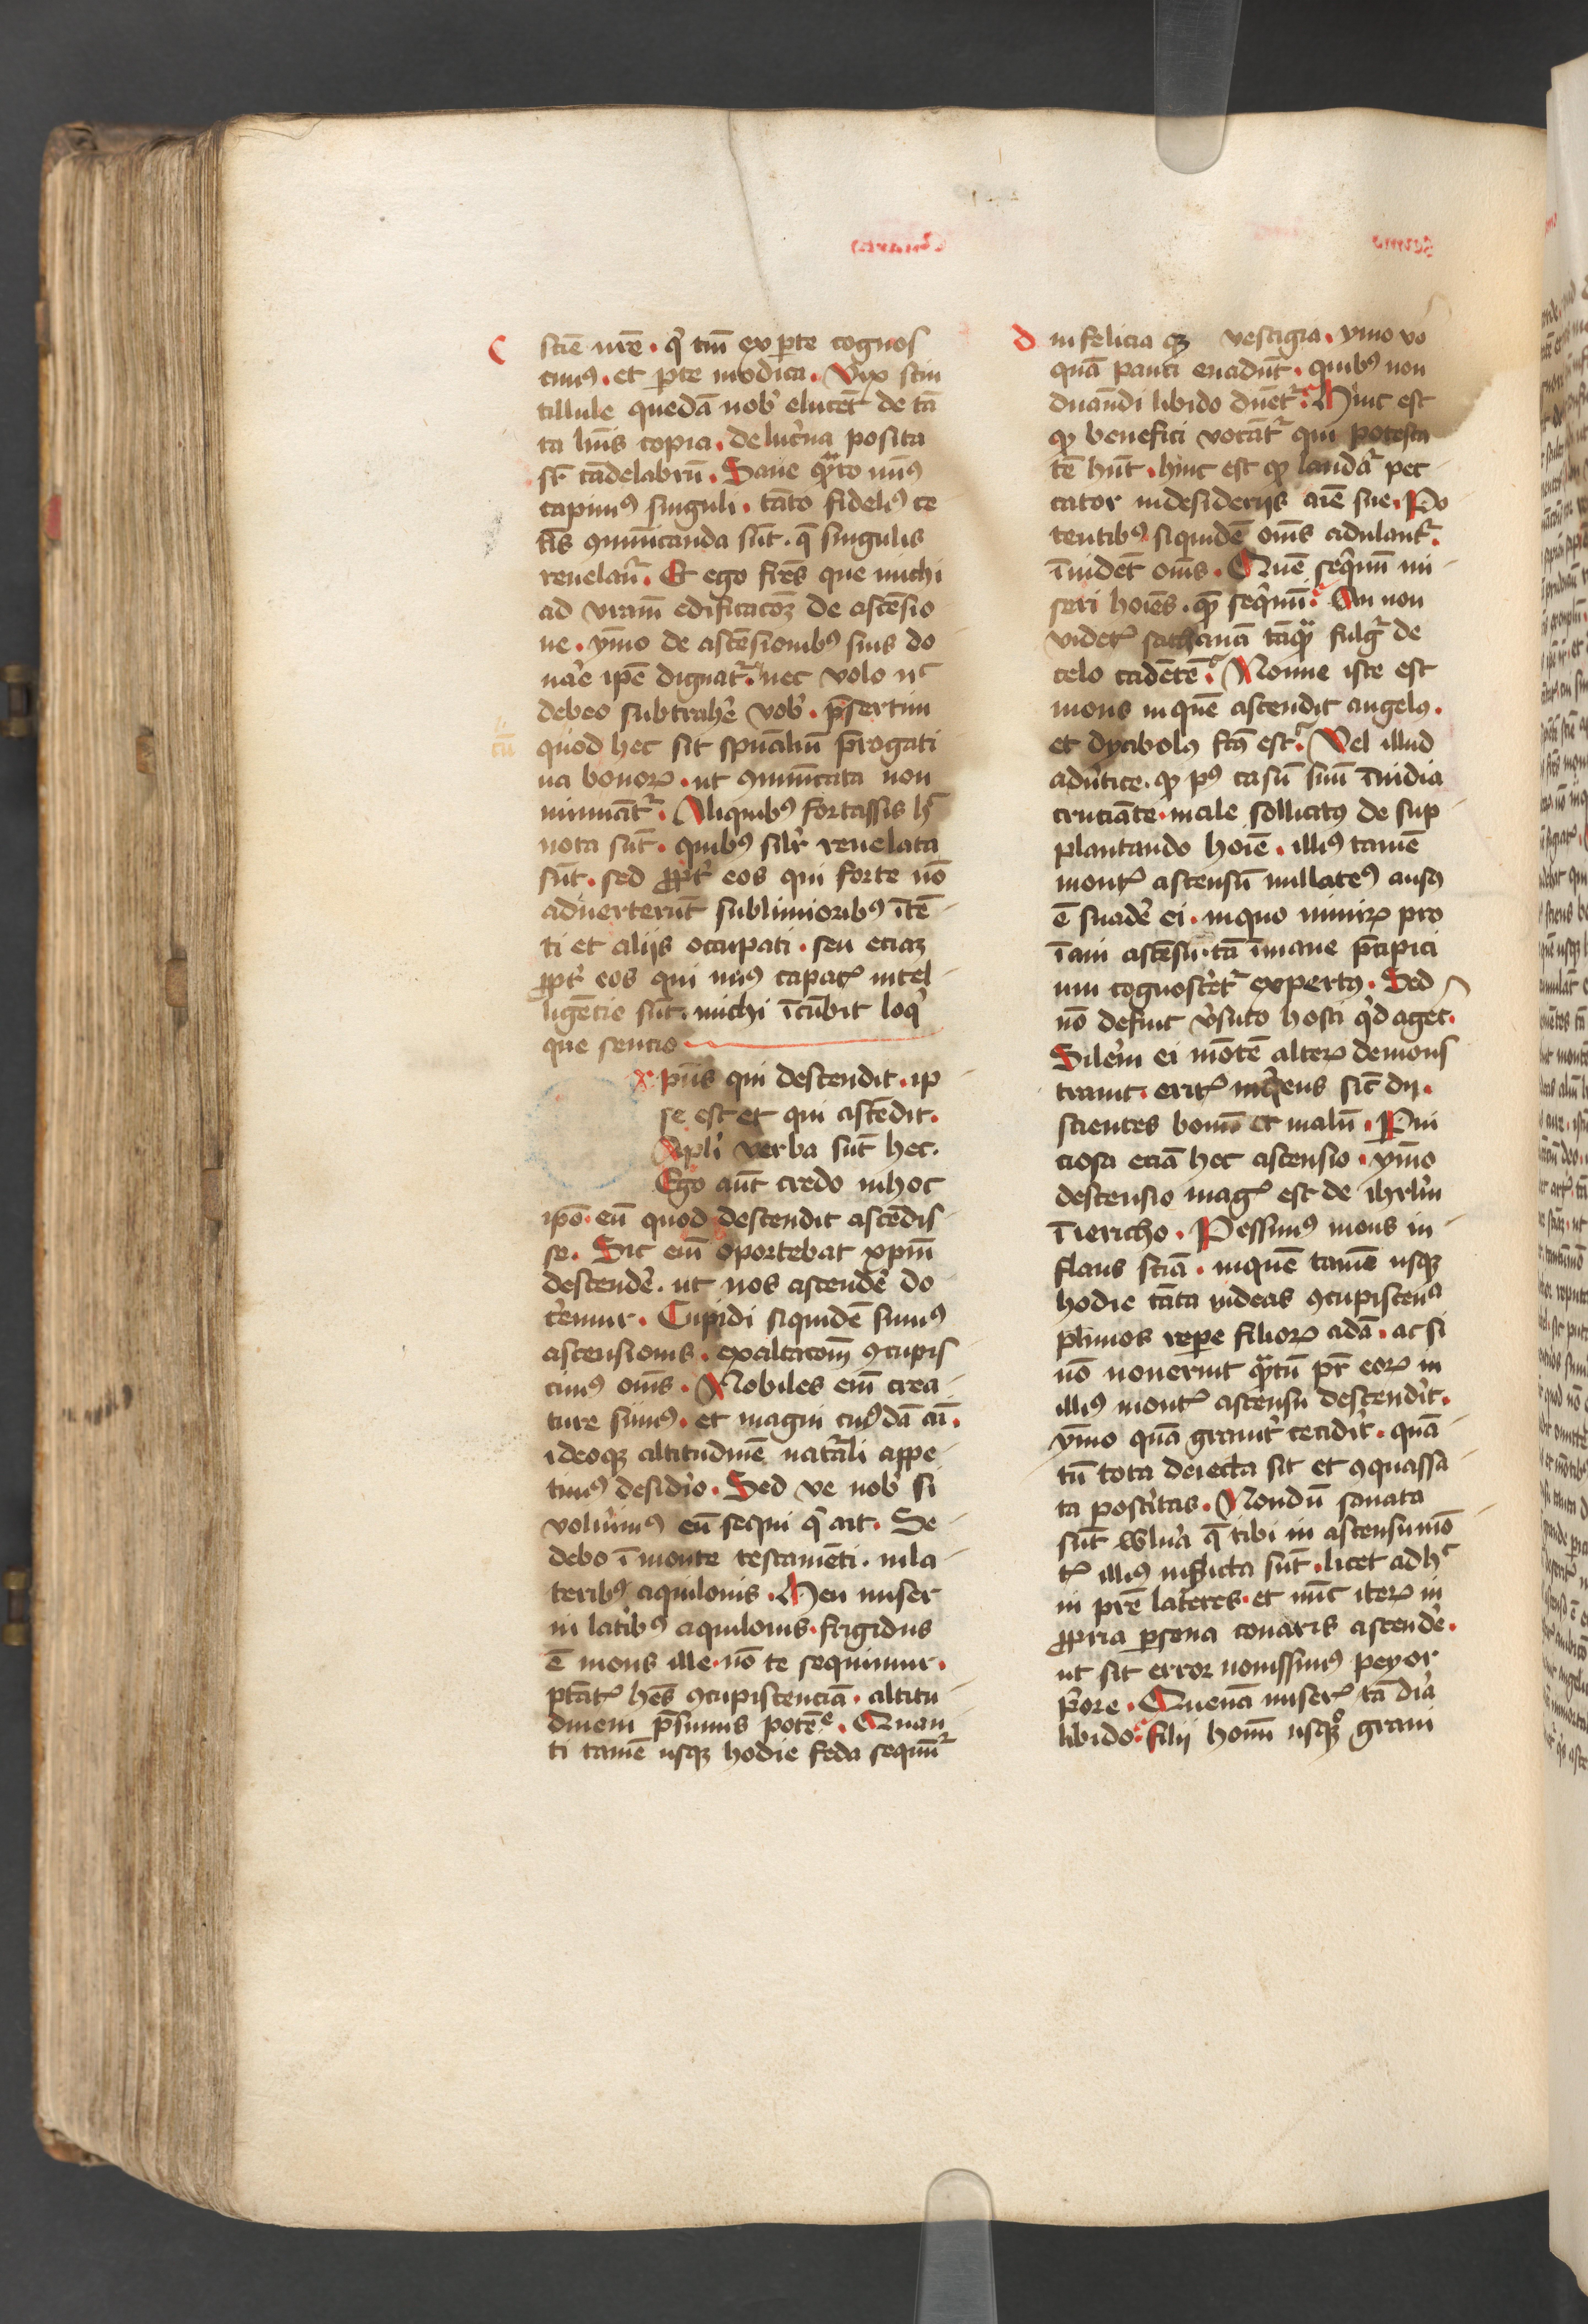 c
sciē nr̄e · q̄ tm̄ ex pte cognos
cimꝰ · et pte modica · Vix scin
tillule quedā nob̓ elucēt de tā
ta lūis copia · de luc̓na posita
sr̄ cādelabrū · Sane qͣto minꝰ
capimꝰ singuli · tāto fideliꝰ ce
tīs ꝯmūicanda sūt · q̄ singulis
revelant̉ · Et ego fr̄es que michi
ad vr̄am edificacōꝫ de ascēsio
ne · ymo de ascēsionibꝰ suis do
nar̓e ip̄e dignat̉ · nec volo nͨ
debeo subtrah̓e vob̓ · p̄sertim
quod hec sit spūaliū p̄rogati
va bonoꝝ · ut ꝯmūicata non
minuāt̉ · Aliquibꝰ fortassis hͨ
nota sūt · quibꝰ silr̓ revelata
sūt · sed ꝓpt̓ eos qui forte nō
adverterūt sublimioribꝰ ītē
ti et aliis occupati · seu eciaꝫ
ꝓpt̓ eos qui minꝰ capacꝭ intel
ligēcie sūt · michi īcūbit loq̓
que sencio
xpūs qui descendit · ip
se est et qui ascēdit ·
Apl̓i verba sūt hec ·
Ego aūt credo in hoc
ip̄o · eū quod descendit ascēdis
se · Sic em̄ oportebat xp̄m
descend̓e · ut nos ascend̓e do
c̓emur · Cupidi siquidē sumꝰ
ascensionis · exaltacōm̄ ꝯcupis
cimꝰ om̄s · Nobiles em̄ crea
ture sumꝰ · et magni cuiꝰdā aī ·
ideoqꝫ altitudinē nat̉ali appe
timꝰ desid̓io · Sed ve nob̓ si
voluim̓ꝰ eū sequi q̓ ait · Se
debo ī monte testamēti · in la
teribꝰ aquilonis · Heu miser
in lat̓ibꝰ aquilonis · frigidus
ē mons ille · nō te sequimur ·
ptātꝭ hēs ꝯcupiscenciā · altitu
dinem p̄sumis potēͨ · Quan
ti tamē usqꝫ hodie feda sequūt̉
d
infelicia qꝫ vestigia · ymo vo
quā pauci evadūt · quibꝰ non
dnāndi libido dn̄et̉ · Hinc est
ꝙ benefici vocāt̉ qui potesta
tē hn̄t · hinc est ꝙ laudat̉ pec
cator in desideriis aīe sue · Po
tentibꝰ siquidē om̄s adulant̉ ·
īvidēt om̄s · Quē seq̓mī mi
seri hoīes · quē seq̓mī · An non
videtꝭ sathanā tāqͣ fulg̓ de
celo cadētē · Nonne iste est
mons in quē ascendit angelꝰ ·
et dyabolꝰ fcūs est · Vel illud
advtite · ꝙ pꝰ casū suū īvidia
cruciāte · male sollicitꝰ de sup
plantando hoīe · illiꝰ tamē
montꝭ ascensū nullatenꝰ ausꝰ
ē suad̓e ei · in quo nimiꝝ pro
īani ascēsu · tā īmane p̄cipici
um cognoscet̉ expertꝰ · Sed
nō defuit v̓suto hosti q̓d aget ·
Silem̓ ei mōtē alteꝝ demons
travit · eritꝭ inq̓ens sic̄ dii ·
scientes bonū et malū · P̱ni
ciosa eciā hec ascensio · ymo
descensio magꝭ est de ihrl̓m
ī iericho · Pessimꝰ mons in
flans sciā · in quē tamē usqꝫ
hodie tāta videas ꝯcupiscenͣ
plimos repe filioꝝ adā · ac si
nō noverint qͣtū pr̄ eoꝝ in
illiꝰ montꝭ ascensu descendit̓ ·
ymo quā gravit̓ cecidit̓ · quā
tū tota deiecta sit et ꝯquassa
ta post̓itas · Nondū sanata
sūt wln̓a q̄ tibi in ascensu mō
tꝭ illiꝰ inflicta sūt · licet adhͨ
in pr̄e lateres · et nūc iteꝝ in
ꝓpria ꝑsona conaris ascend̓e ·
ut sit error novissimꝰ peyor
p̓ore · Quenā miserꝭ tā dir̓a
libido · filii hom̄ usqꝫ quo gravi